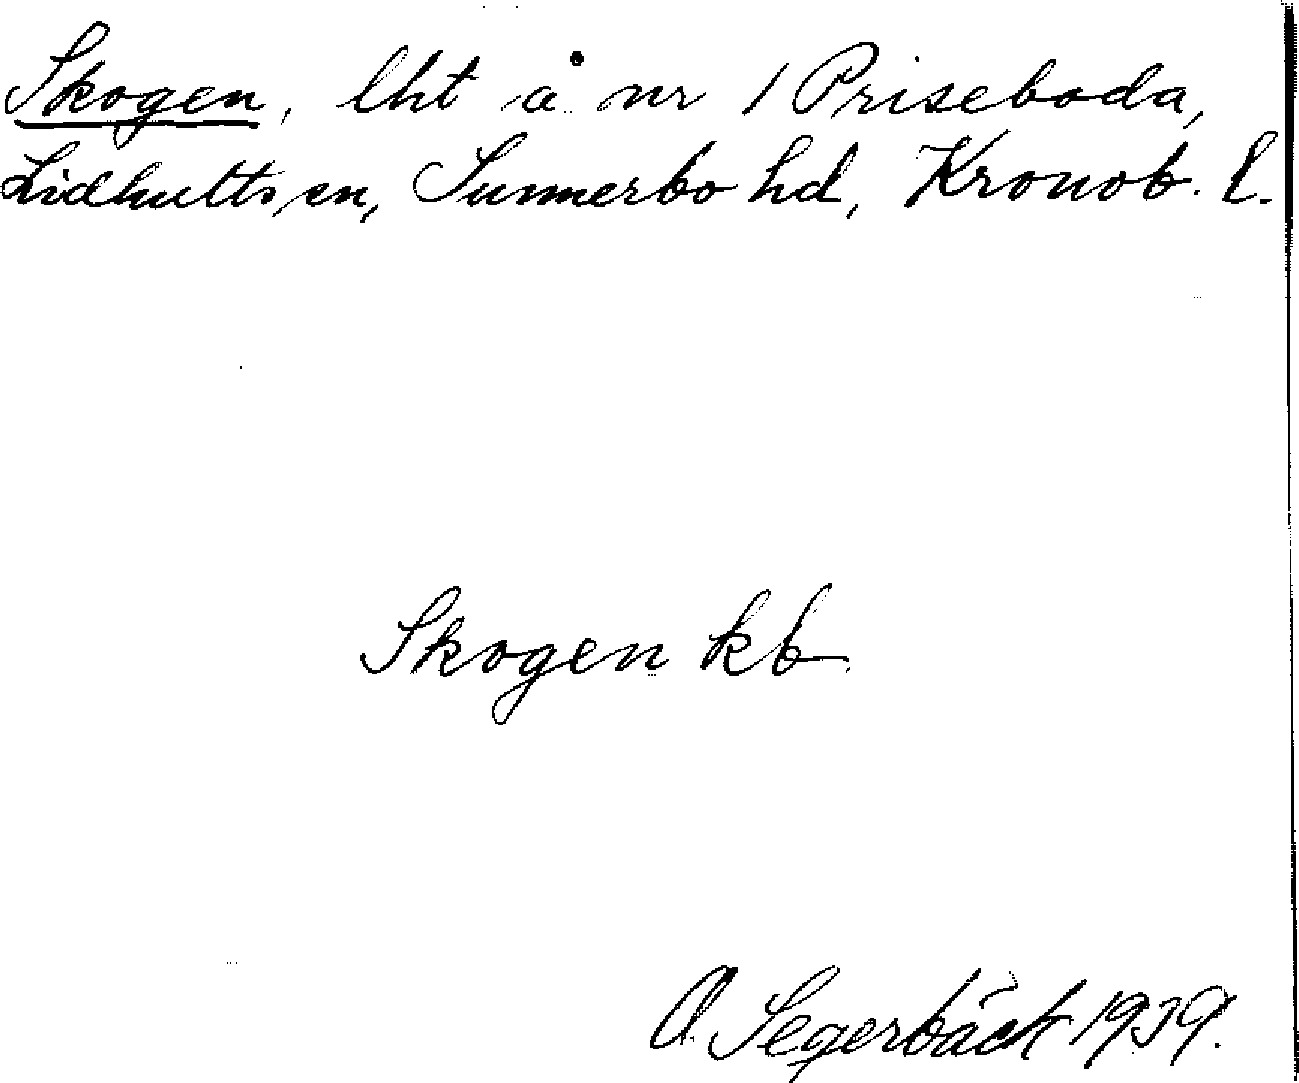 Skogen, lht å nr 1 Priseboda,
Lidhults sn, Sunnerbo hd, Kronob. l.
Skogen kb
O. Segerbäck 1939.